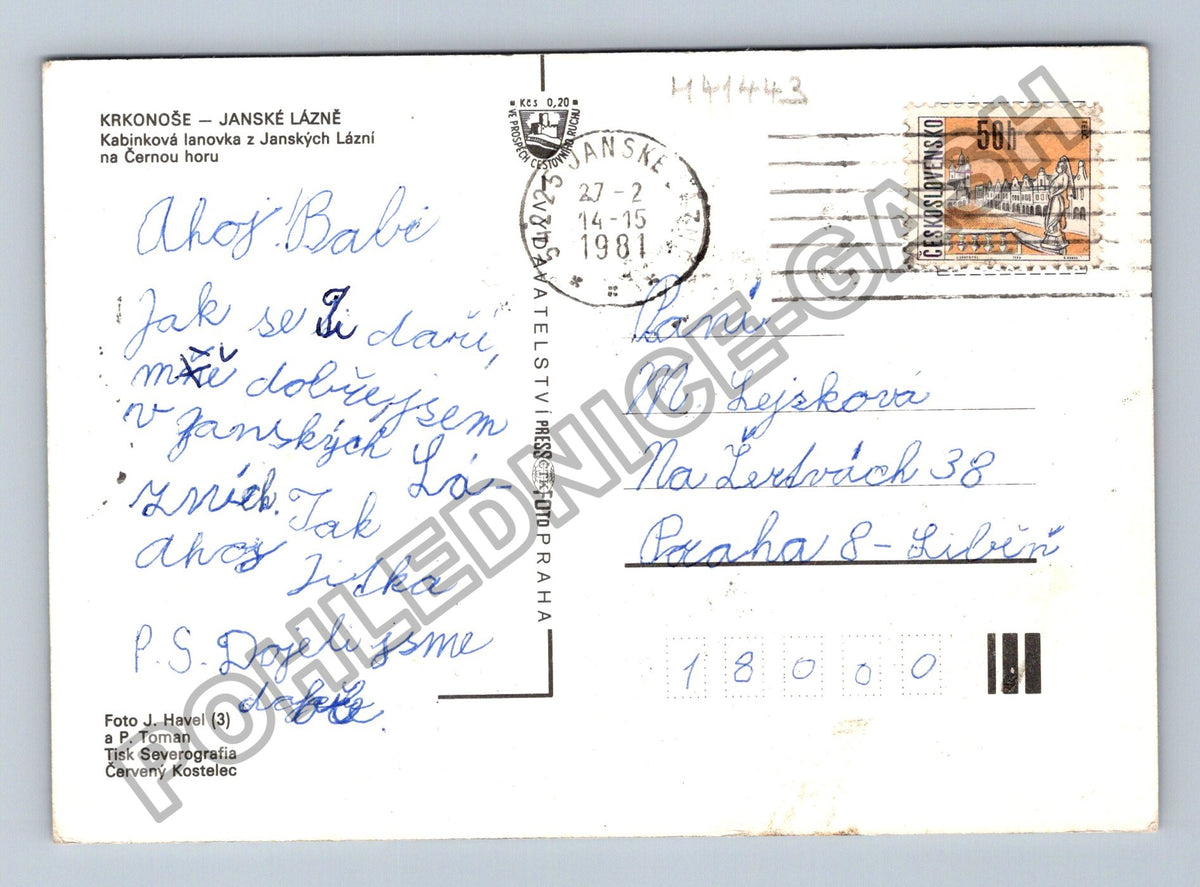 KRKONOŠE — JANSKÉ LÁZNĚ
Kabinková lanovka z Janských Lázní
na Černou horu
Ahoj Babi
Jak se Ti daří,
mně dobře, jsem
v Janských Lá-
zních. Tak
Ahoj Jitka
P.S. Dojeli jsme
dobře.
Foto J. Havel (3)
a P. Toman
Tisk Severografia
Červený Kostelec
Kčs 0,20
VE PROSPĚCH CESTOVNÍHO RUCHU
VYDAVATELSTVÍ PRESSFOTO PRAHA
ČTK
H41443
JANSKÉ
27-2
14-15
1981
ČESKOSLOVENSKO
50h
Paní
M. Lejsková
Na Žertvách 38
Praha 8 - Libeň
18000
POHLEDNICE-GASH